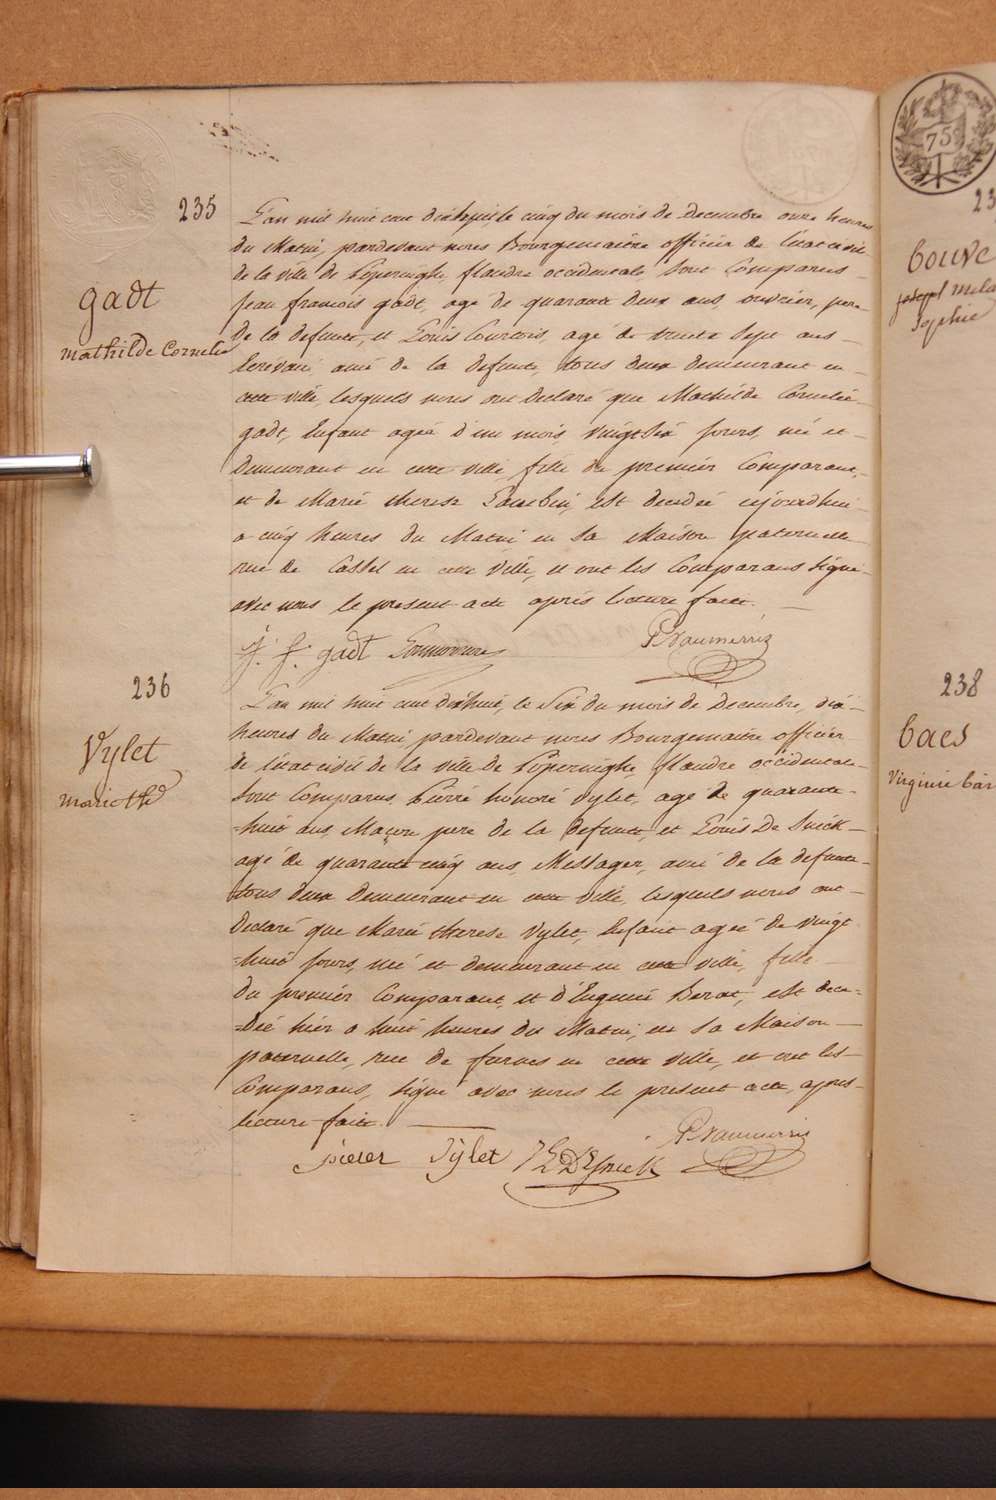 235
gadt
mathilde Cornelie
L'an mil huit cent dixhuit, le cinq du mois de Decembre onze heures
du Matin, pardevant nous Bourgemaitre officier de l'état civil
de la ville de Poperinghe, flandre occidentale sont Comparus
Jean francois gadt, agé de quarante deux ans, ouvrier, pere
de la defunte, et Louis Courtois, agé de trente sept ans
Ecrivain, ami de la defunte, tous deux demeurant en
cette ville, lesquels nous ont Declaré que Mathilde Cornelie
gadt, Enfant agée d'un mois, vingt six jours, née et
demeurant en cette ville, fille du premier Comparant,
et de Marie therese, est decedée cejourdhui
a cinq heures du Matin en sa Maison paternelle
rue de Cassel en cette ville, et ont les Comparans signé
avec nous le present acte après lecture faite.
J. f. gadt
236
Vylet
marie the
L'an mil huit cent dixhuit, le six du mois de Decembre, dix
heures du Matin, pardevant nous Bourgemaitre officier
de l'état civil de la ville de Poperinghe flandre occidentale
sont Comparus Pierre honoré Vylet, agé de quarante
=huit ans, Maçon pere de la defunte, et Louis De Snick
agé de quarante cinq ans, Messager, ami de la defunte
tous deux demeurant en cette ville, lesquels nous ont
Declaré que Marie therese Vylet, Enfant agée de vingt
=huit jours, née et demeurant en cette ville, fille
du premier Comparant, et d'Eugenie Berat, est dece=
=dée hier a huit heures du Matin, en sa Maison
paternelle, rue de furnes en cette ville, et ont les
Comparans, signé avec nous le present acte, après
lecture faite.
pieter Vylet
75
23
bouve
joseph
Sophie
238
baes
Virginie bar